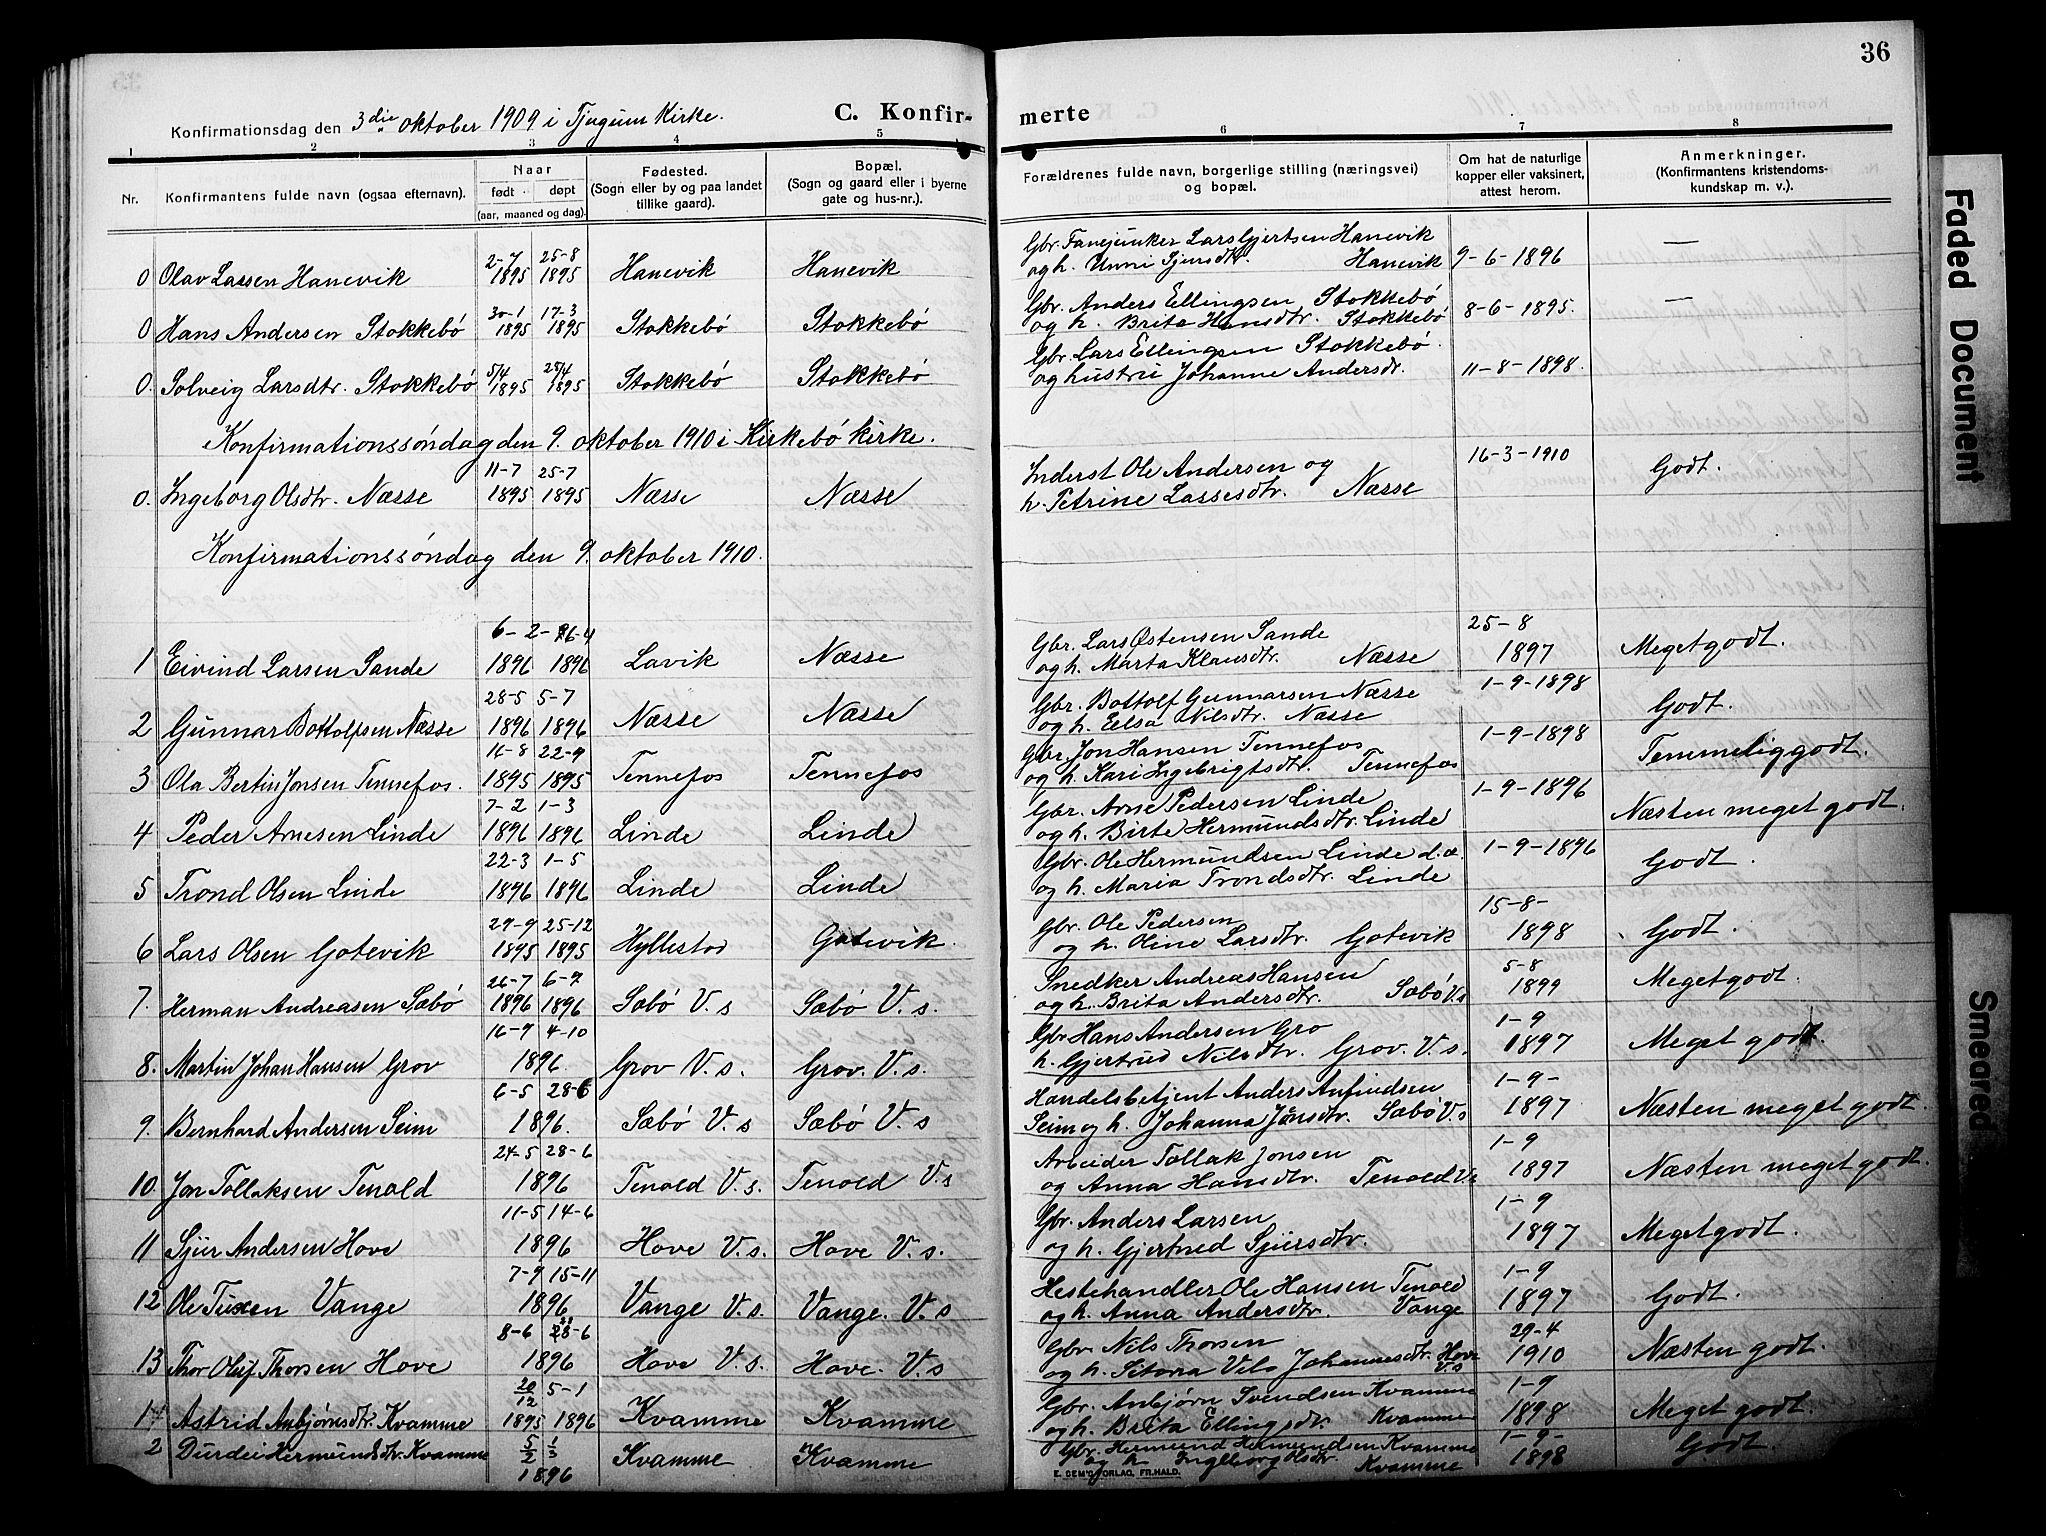 36
Konfirmationsdag den 3die oktober 1909 i Tjugum Kirke.
C. Konfirmerte
1 2 3 4 5 6 7 8
Nr.
Konfirmantens fulde navn (ogsaa efternavn).
Naar
født døpt
(aar, maaned og dag).
Fødested.
(Sogn eller by og paa landet
tillike gaard).
Bopæl.
(Sogn og gaard eller i byerne
gate og hus-nr.).
Forældrenes fulde navn, borgerlige stilling (næringsvei)
og bopæl.
Om hat de naturlige
kopper eller vaksinert,
attest herom.
Anmerkninger.
(Konfirmantens kristendoms-
kundskap m. v.).
2-7 25-8 Gbr. Fanejunker Lars Gjertsen Hanevik —
0 Olav Larsen Hanevik 1895 1895 Hanevik Hanevik og h. Unni Sjursdtr. Hanevik 9-6-1896
30-1 17-3 Gbr. Anders Ellingsen Stokkebö —
0 Hans Andersen Stokkebö 1895 1895 Stokkebö Stokkebö og h. Brite Hansdtr. Stokkebö 8-6-1895.
5/4 28/4 Gbr. Lars Ellingsen Stokkebö.
0. Solveig Larsdtr. Stokkebö 1895 1895 Stokkebö Stokkebö og hustru Johanne Andersdr. 11-8-1898.
Konfirmationssöndag den 9. oktober 1910 i Kirkebö kirke.
11-7 25-7 Inderst Ole Andersen og 16-3-1910 Godt.
0. Ingeborg Olsdtr. Næsse 1895 1895 Næsse Næsse h. Petrine Lassesdtr. Næsse
Konfirmationssöndag den 9. oktober 1910.
6-2- 16-4 Gbr. Lars Østensen Sande 25-8
1 Eivind Larsen Sande 1896 1896 Lavik Næsse og h. Marta Klausdtr. Næsse 1897 Meget godt.
28-5 5-7 Gbr. Bottolf Gunnarsen Næsse 1-9-1898
2 Gunnar Bottolfsen Næsse 1896 1896 Næsse Næsse og h. Eelsa Nilsdtr. Næsse Godt.
16-8 22-9 Gbr. Jon Hansen Tennefos 1-9-1898
3 Ola Bertin Jonsen Tennefos. 1895 1895 Tennefos Tennefos og h. Kari Ingebrigtsdtr. Tennefos Temmelig godt.
7-2 1-3 Gbr. Arne Pedersen Linde 1-9-1896
4 Peder Arnesen Linde 1896 1896 Linde Linde og h. Birte Hermundsdtr. Linde Næsten meget godt.
22-3 1-5 Gbr. Ole Hermundsen Linde d.æ. 1-9-1896
5 Trond Olsen Linde 1896 1896 Linde Linde og h. Maria Trondsdtr. Linde Godt.
29-9 25-12 Gbr. Ole Pedersen 15-8-
6 Lars Olsen Gotevik 1895 1895 Hyllestad Gotevik. og h. Oline Larsdtr. Gotevik 1898 Godt.
26-7 6-9 Snedker Andreas Hansen 5-8
7. Herman Andreasen Sæbö 1896 1896 Sæbö V. s Sæbö V. s. og h. Brita Andersdtr. Sæbö V.s 1899 Meget godt.
16-9 4-10 Gbr Hans Andersen Gro 1-9
8. Martin Johan Hansen Grov 1896. Grov V. s. Grov. V. s. h. Gjertrud Nilsdtr. Grov. V. s. 1897 Meget godt.
6-5 28-6 Handelsbetjent Anders Anfindsen 1-9-
9. Bernhard Andersen Seim 1896. Sæbö V. s Sæbö V. s Seim og h. Johanna Jónsdtr. Sæbö V. s 1897 Næsten meget godt.
24-5 28-6 Arbeider Tollak Jonsen 1-9
10. Jon Tollaksen Tenold 1896 Tenold V. s. Tenold V. s og Anna Hansdtr. Tenold V.s 1897 Næsten meget godt.
11-5 14-6 Gbr. Anders Larsen 1-9
11 Sjur Andersen Hove 1896 Hove V. s. Hove V. s. og h. Gjertrud Sjursdtr. 1897 Meget godt.
7-9 15-11 Hestehandler Ole Hansen Tenold 1-9
12 Ole Tuxen Vange 1896 Vange V. s. Vange. V. s og h. Anna Andersdtr. Vange 1897 Godt.
8-6 28-6 Gbr. Nils Thorsen 29-4
13 Thor Oluf Thorsen Hove 1896 Hove V. s. Hove. V. s og h. Johannesdtr. Hove V.s 1910 Næsten godt.
20/12 5-1 Gbr. Anbjörn Svendsen Kvamme 1-9
1 Astrid Anbjörnsdtr. Kvamme 1895 1896 Kvamme Kvamme og h. Brita Ellingsdtr. Kvamme 1898 Meget godt.
5/2 1/3 Gbr. Hermund Hermundsen Kvamme 1-9-
2 Durdei Hermundsdtr. Kvamme 1896 Kvamme Kvamme og h. Ingeborg Olsdtr Kvamme 1898 Godt.
E. SEM'S FORLAG, FR.HALD.
Faded Document
Smeared